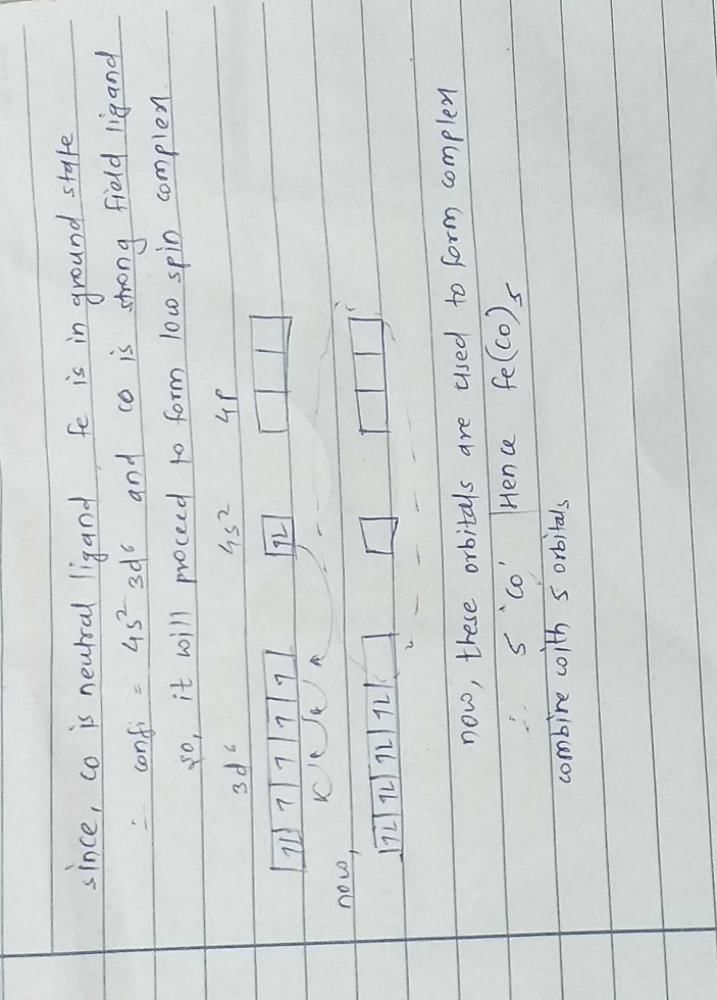 since, CO is neutral ligand fe is in ground state
∴ confi = 4s² 3d⁶ and CO is strong field ligand
so, it will proceed to form low spin complex
3d⁶ 4s² 4p
now,
now, these orbitals are used to form complex
∴ 5 'CO' Hence fe(CO)₅
combine with 5 orbitals